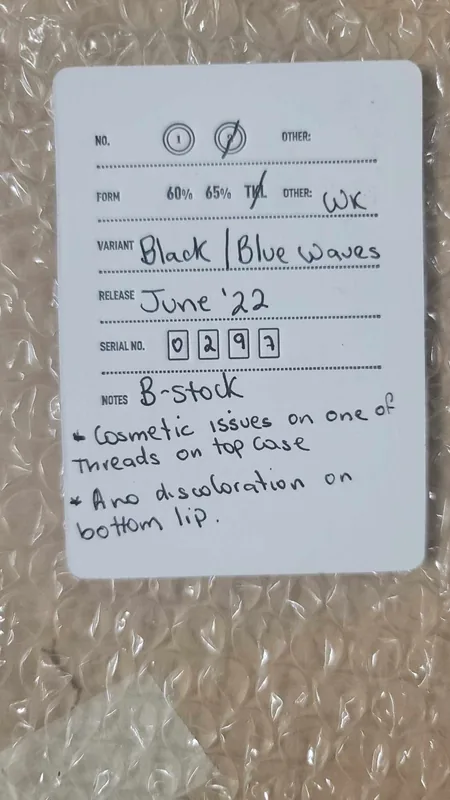 NO. 1 2 OTHER:
FORM 60% 65% TKL OTHER: WK
VARIANT Black | Blue waves
RELEASE June '22
SERIAL NO. 0 2 9 7
NOTES B-stock
* Cosmetic issues on one of
Threads on top case
* Ano discoloration on
bottom lip.